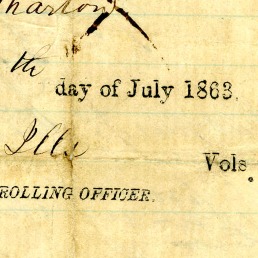 harton
th day of July 1863.
Ills Vols.
ROLLING OFFICER.